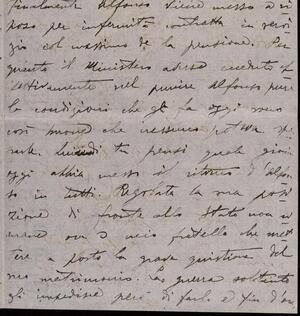 finalmente Alfonso viene messo a ri
poso per infermità contratta in servi
zio col massimo de la pensione. Per
quanto il Ministero adesso
nel punire Alfonso pure
le condizioni che gli fa oggi sono
così che nessuno poteva spe
rare. tu pensi quale gioia
oggi abbia messo il ritorno d'Alfon
so in tutti. Regolata la sua posi
zione di fronte allo Stato non ri
mane ora a mio fratello che met
tere a posto la grave quistione del
suo matrimonio. La guerra soltanto
gli impedisce però di farlo e fin d'ora